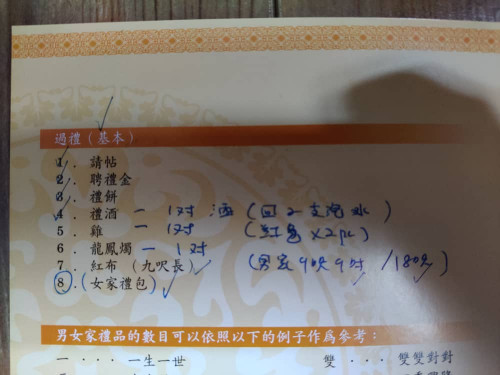 過禮（基本）
1. 請帖
2. 聘禮金
3. 禮餅
4. 禮酒 一 1対 酒 (回2支汽水)
5. 雞 一 1対 (紅包x2pc)
6. 龍鳳燭 一 1対
7. 紅布（九呎長）(男家9呎9吋 /180
8.（女家禮包）
男女家禮品的數目可以依照以下的例子作爲參考：
一 ··· 一生一世 雙 ··· 雙雙對對